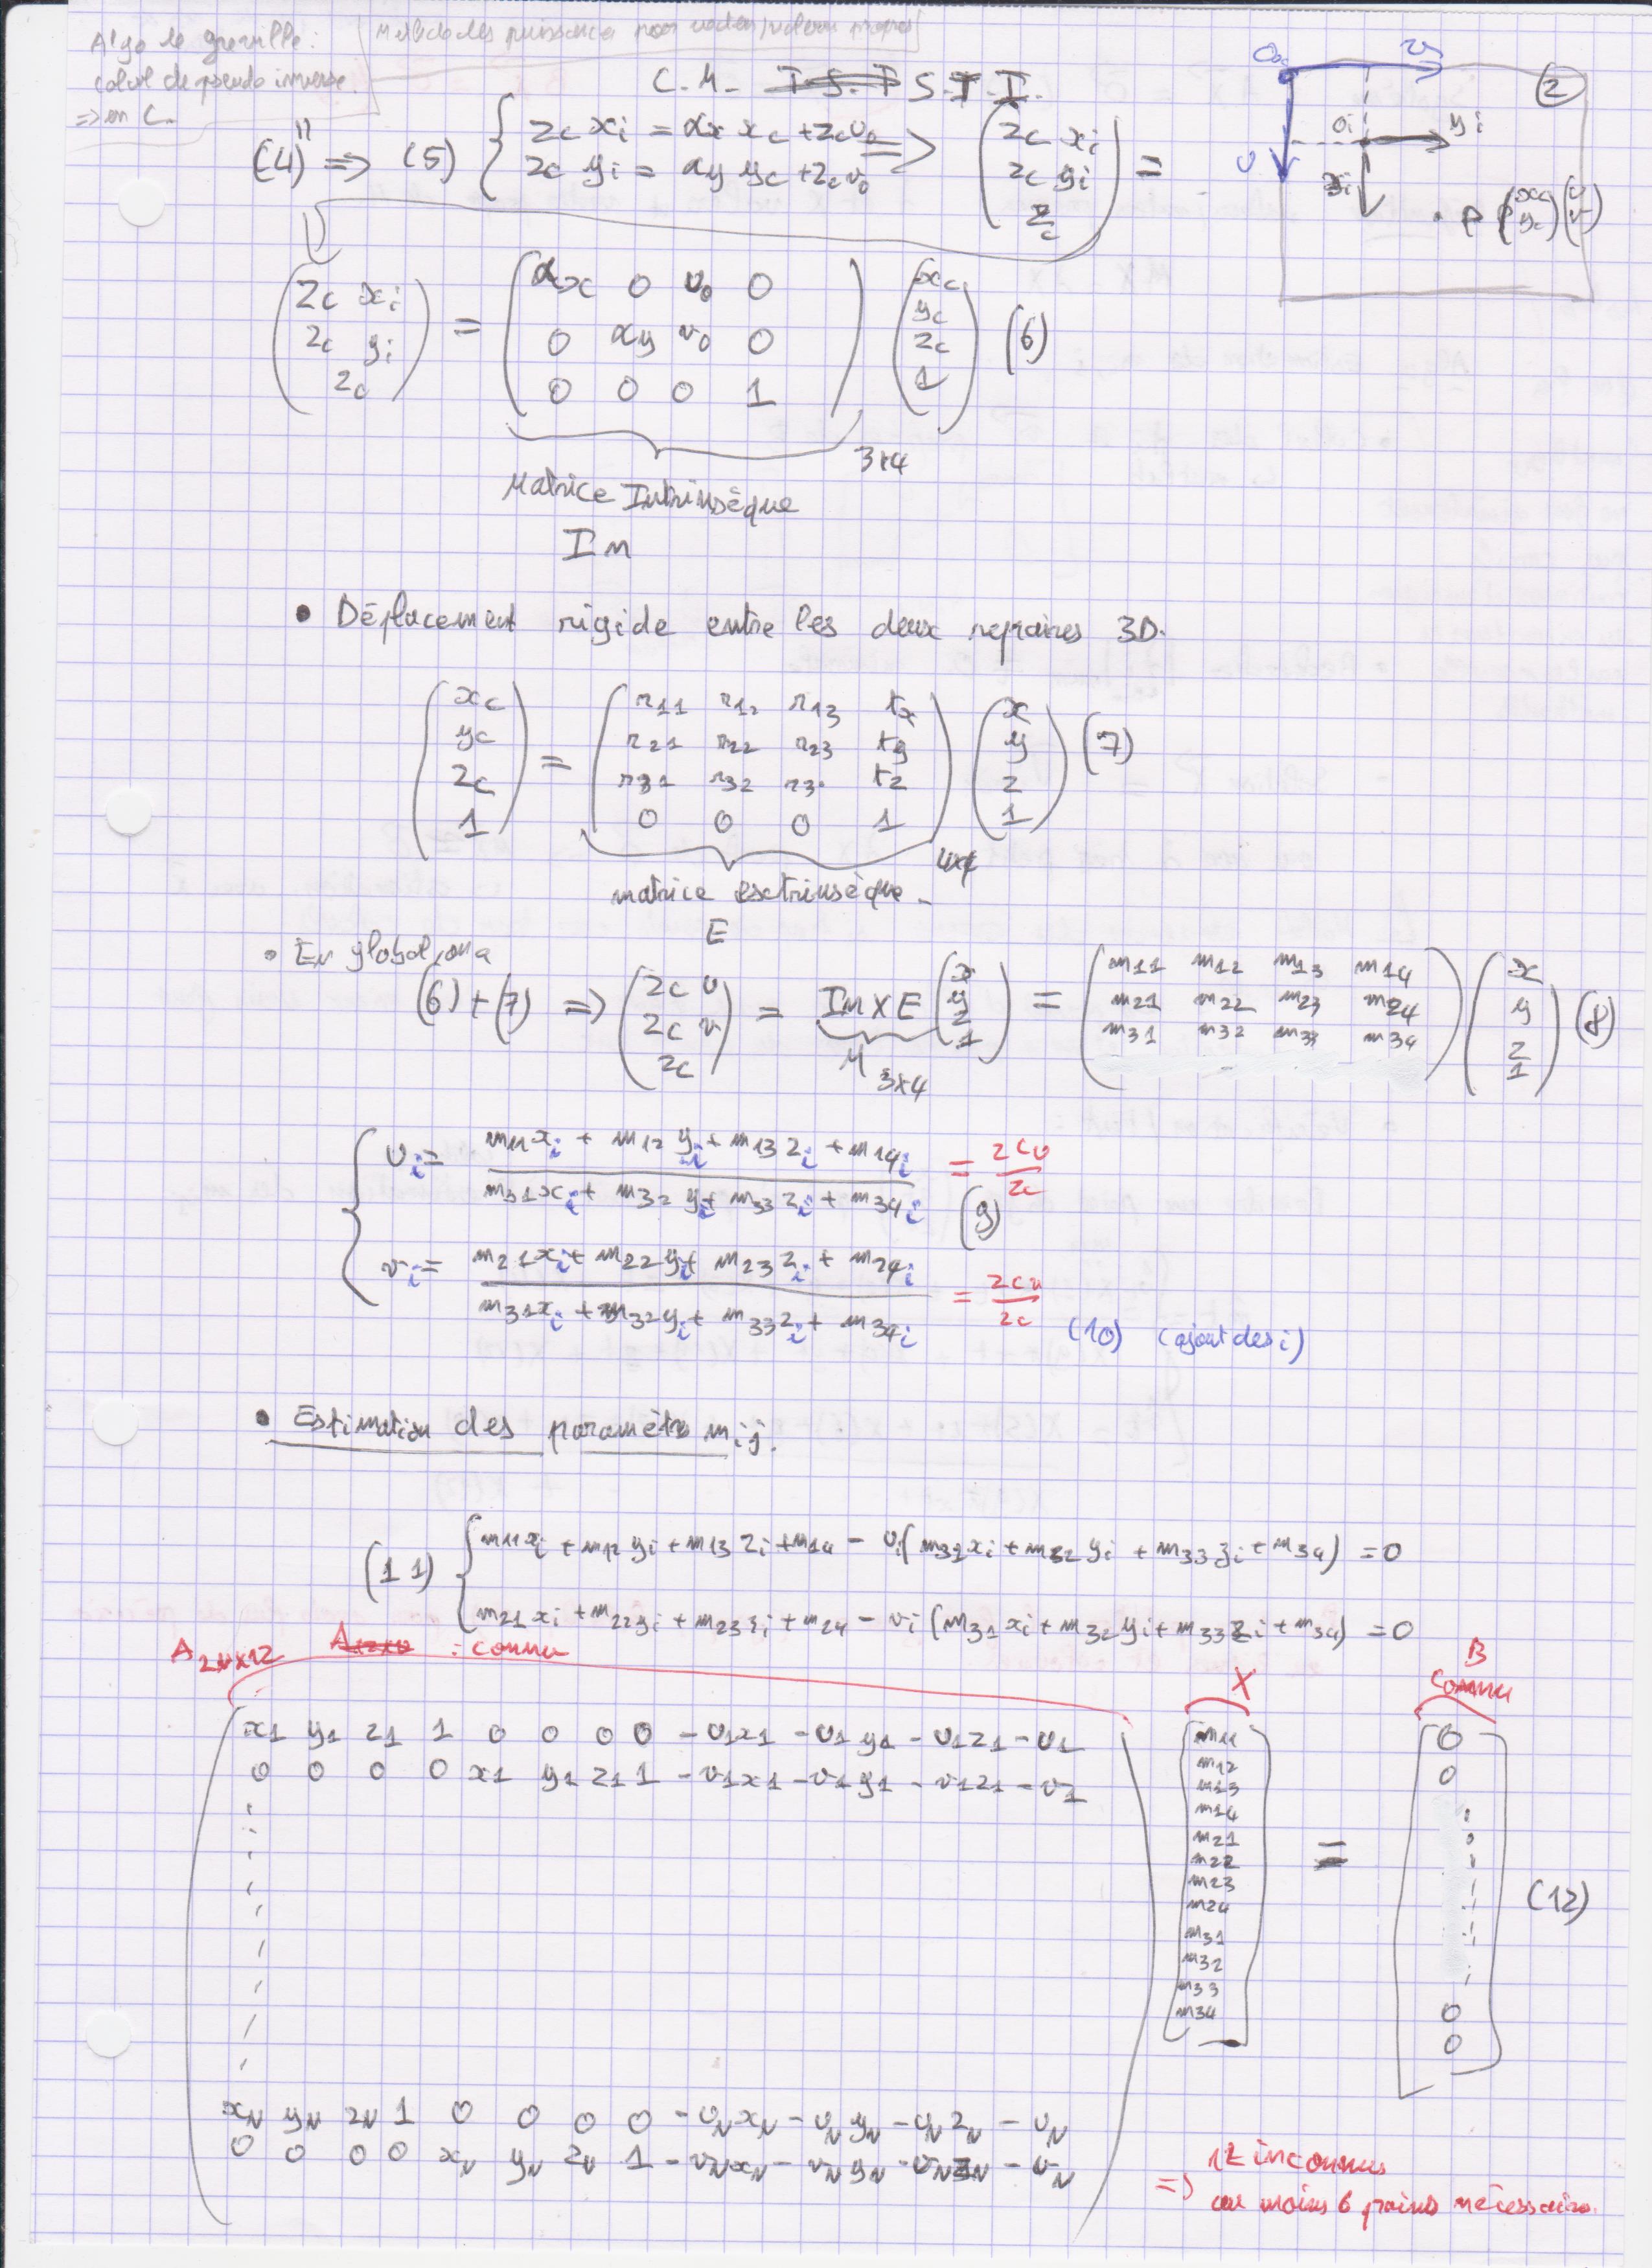 Algo de greville:
calcul de pseudo inverse.
=> en C.
Methode des puissances pour vecteur/valeurs propres
C.M. I.S.T S.T.I.
2
(4) => (5) { zc xi = αx xc + zc u0 => ( zc xi
zc yi = αy yc + zc v0 zc yi
zc ) =
Oc v
u oi yi
xi
. P (xc yc) (u v)
( zc xi ) = ( αx 0 u0 0 ) ( xc )
( zc yi ) ( 0 αy v0 0 ) ( yc ) (6)
( zc ) ( 0 0 0 1 ) ( zc )
( 1 )
3x4
Matrice Intrinsèque
Im
• Déplacement rigide entre les deux repaires 3D.
( xc ) ( r11 r12 r13 tx ) ( x )
( yc ) = ( r21 r22 r23 ty ) ( y ) (7)
( zc ) ( r31 r32 r3. tz ) ( z )
( 1 ) ( 0 0 0 1 ) ( 1 )
4x4
matrice esctrinsèque.
E
• En global, on a
(6)+(7) => ( zc u ) = Im X E ( x ) = ( m11 m12 m13 m14 ) ( x )
( zc v ) ( y ) ( m21 m22 m23 m24 ) ( y ) (8)
( zc ) ( z ) ( m31 m32 m33 m34 ) ( z )
M 3x4 ( 1 ) ( 1 )
ui = m11xi + m12 yi + m13 zi + m14i = zcu
m31xi + m32 yi + m33 zi + m34i zc
(9)
vi = m21xi + m22 yi + m23 zi + m24i = zcv
m31xi + m32yi + m33zi + m34i zc
(10) (ajout des i)
• Estimation des paramètre mij.
(11) { m11xi + m12 yi + m13 zi + m14 - ui( m31xi + m32 yi + m33 zi + m34) = 0
m21 xi + m22yi + m23zi + m24 - vi (m31 xi + m32 yi + m33 zi + m34) = 0
A2Nx12 A12x0 : connu X B connu
x1 y1 z1 1 0 0 0 0 -u1x1 -u1 y1 -u1z1 -u1
0 0 0 0 x1 y1 z1 1 -v1x1 -v1 y1 -v1z1 -v1
xN yN zN 1 0 0 0 0 -uNxN -uNyN -uNzN -uN
0 0 0 0 xN yN zN 1 -vNxN -vNyN -vNzN -vN
m11
m12
m13
m14
m21
m22
m23
m24
m31
m32
m33
m34
=
0
0
0
0
(12)
=> 12 inconnues
au moins 6 points nécessaires.